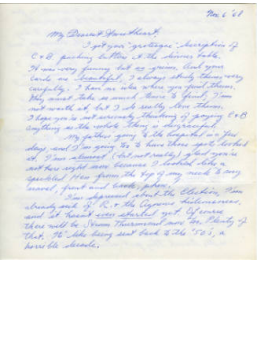 Nov. 6 '68
My Dearest Sweetheart,
I got your "grotesque" description of
C + B pushing butter at the dinner table.
It was very funny but so gross. And your
cards are beautiful. I always study them very
carefully. I have no idea where you find them.
They must take so much time to find. I'm
not worth it, but I do really love them.
I hope you're not seriously thinking of giving C + B
anything as the whole idea is
My father's going to the hospital in a few
days and I'm going to to have those spots looked
at. I'm almost (but not really) glad you're
not here right now because I looked like a
speckled Hen from the top of my neck to my
navel, front and back,
I'm depressed about the Election. I'm
already sick of R. + the Agnew
and it hasn't even started yet. Of course
there will be Strom Thurmond now too. Plenty of
that. It's like being sent back to the '50's, a
horrible decade.